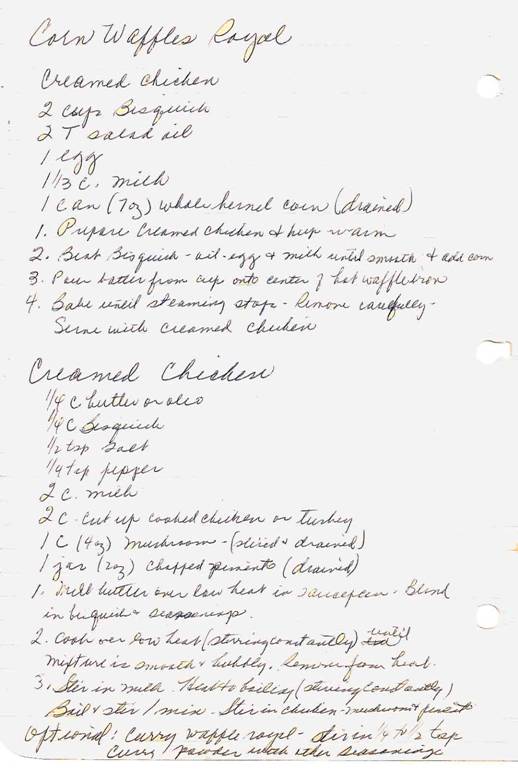 Corn Waffles Royal
Creamed chicken
2 cups Bisquick
2 T salad oil
1 egg
1 1/3 c. milk
1 can (7oz) whole kernel corn (drained)
1. Prepare Creamed chicken & keep warm
2. Beat Bisquick - oil - egg & milk until smooth & add corn
3. Pour batter from cup onto center of hot waffle iron
4. Bake until steaming stops - Remove carefully -
Serve with creamed chicken
Creamed Chicken
1/4 c butter or oleo
1/4 c Bisquick
1/2 tsp salt
1/4 tsp pepper
2 c. milk
2 c. cut up cooked chicken or turkey
1 c (4oz) mushroom - (sliced & drained)
1 jar (2oz) chopped pimento (drained)
1. Melt butter over low heat in saucepan. Blend
in bisquick & seasonings.
2. Cook over low heat (stirring constantly) until
mixture is smooth & bubbly. Remove from heat.
3. Stir in milk. Heat to boiling (stirring constantly)
Boil & stir 1 min. Stir in chicken - mushroom & pimento
Optional: Curry waffle royal - stir in 1/4 to 1/2 tsp
curry powder with other seasonings